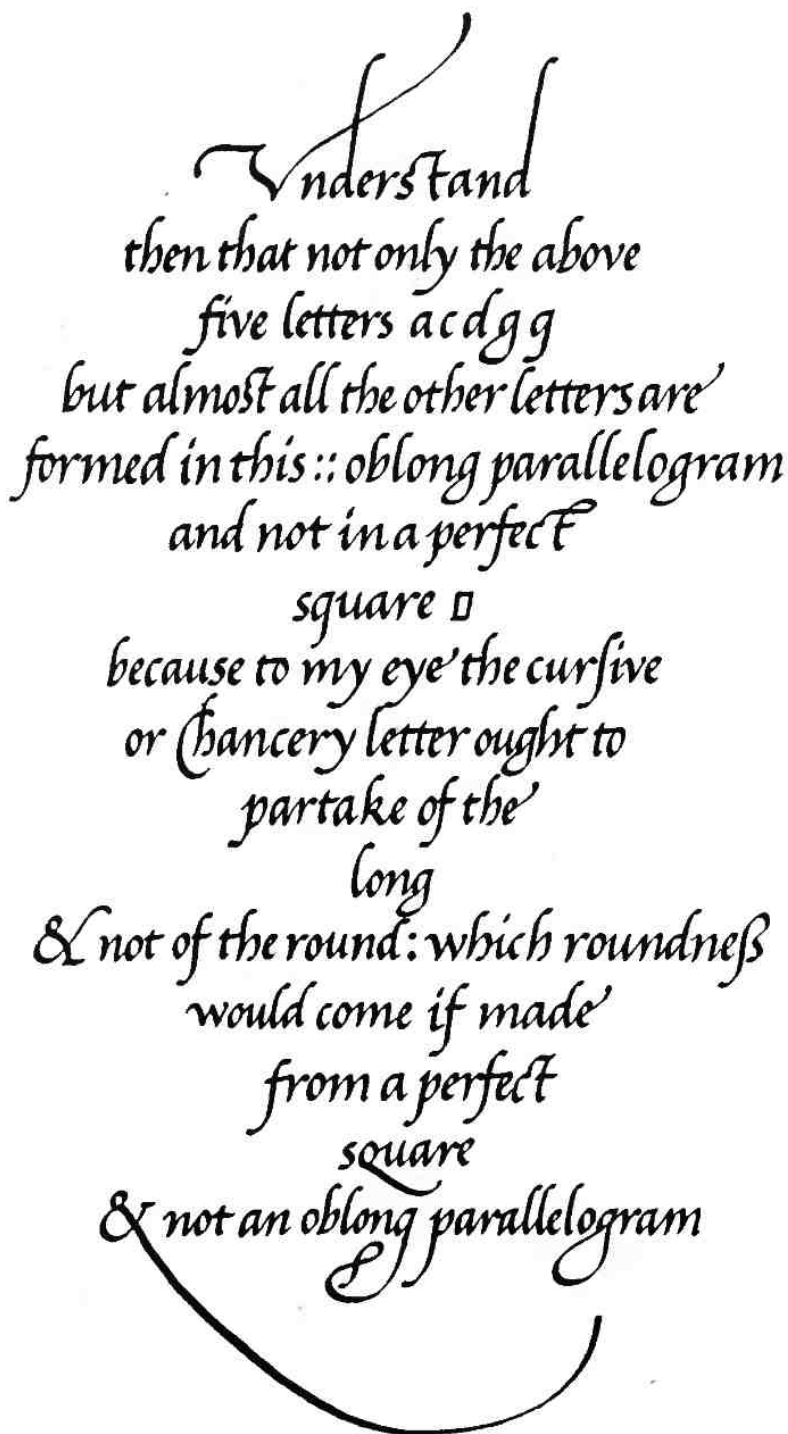 Vnderstand
then that not only the above
five letters a c d g q
but almost all the other letters are
formed in this :: oblong parallelogram
and not in a perfect
square ▯
because to my eye the curſive
or Chancery letter ought to
partake of the
long
& not of the round: which roundneſs
would come if made
from a perfect
square
& not an oblong parallelogram